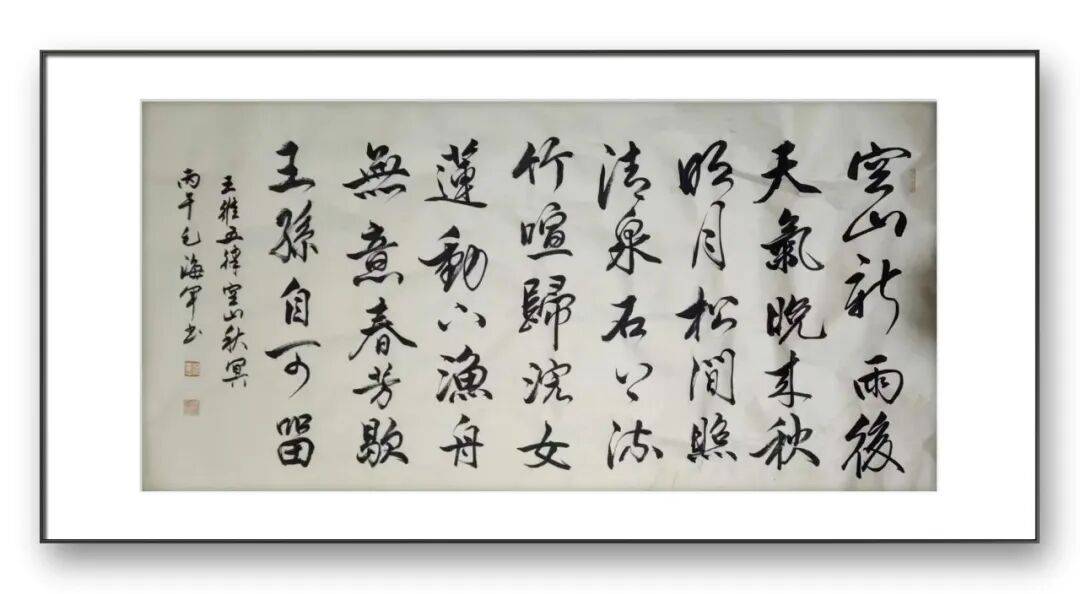 空山新雨後
天氣晚来秋
明月松間照
清泉石上流
竹喧歸浣女
蓮動下漁舟
無意春芳歇
王孫自可留
王維五律空山秋冥
丙午毛海军书